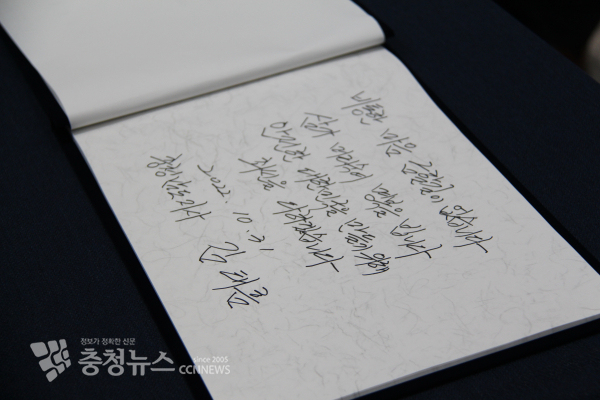 비통한 마음 금할길이 없습니다
삼가 명복을 빕니다
안전한 대한민국을 만들기 위해
최선을 다하겠습니다
2022. 10. 31
충청남도지사
김 태 흠
정보가 정확한 신문
충청뉴스
Since 2005
CCNNEWS